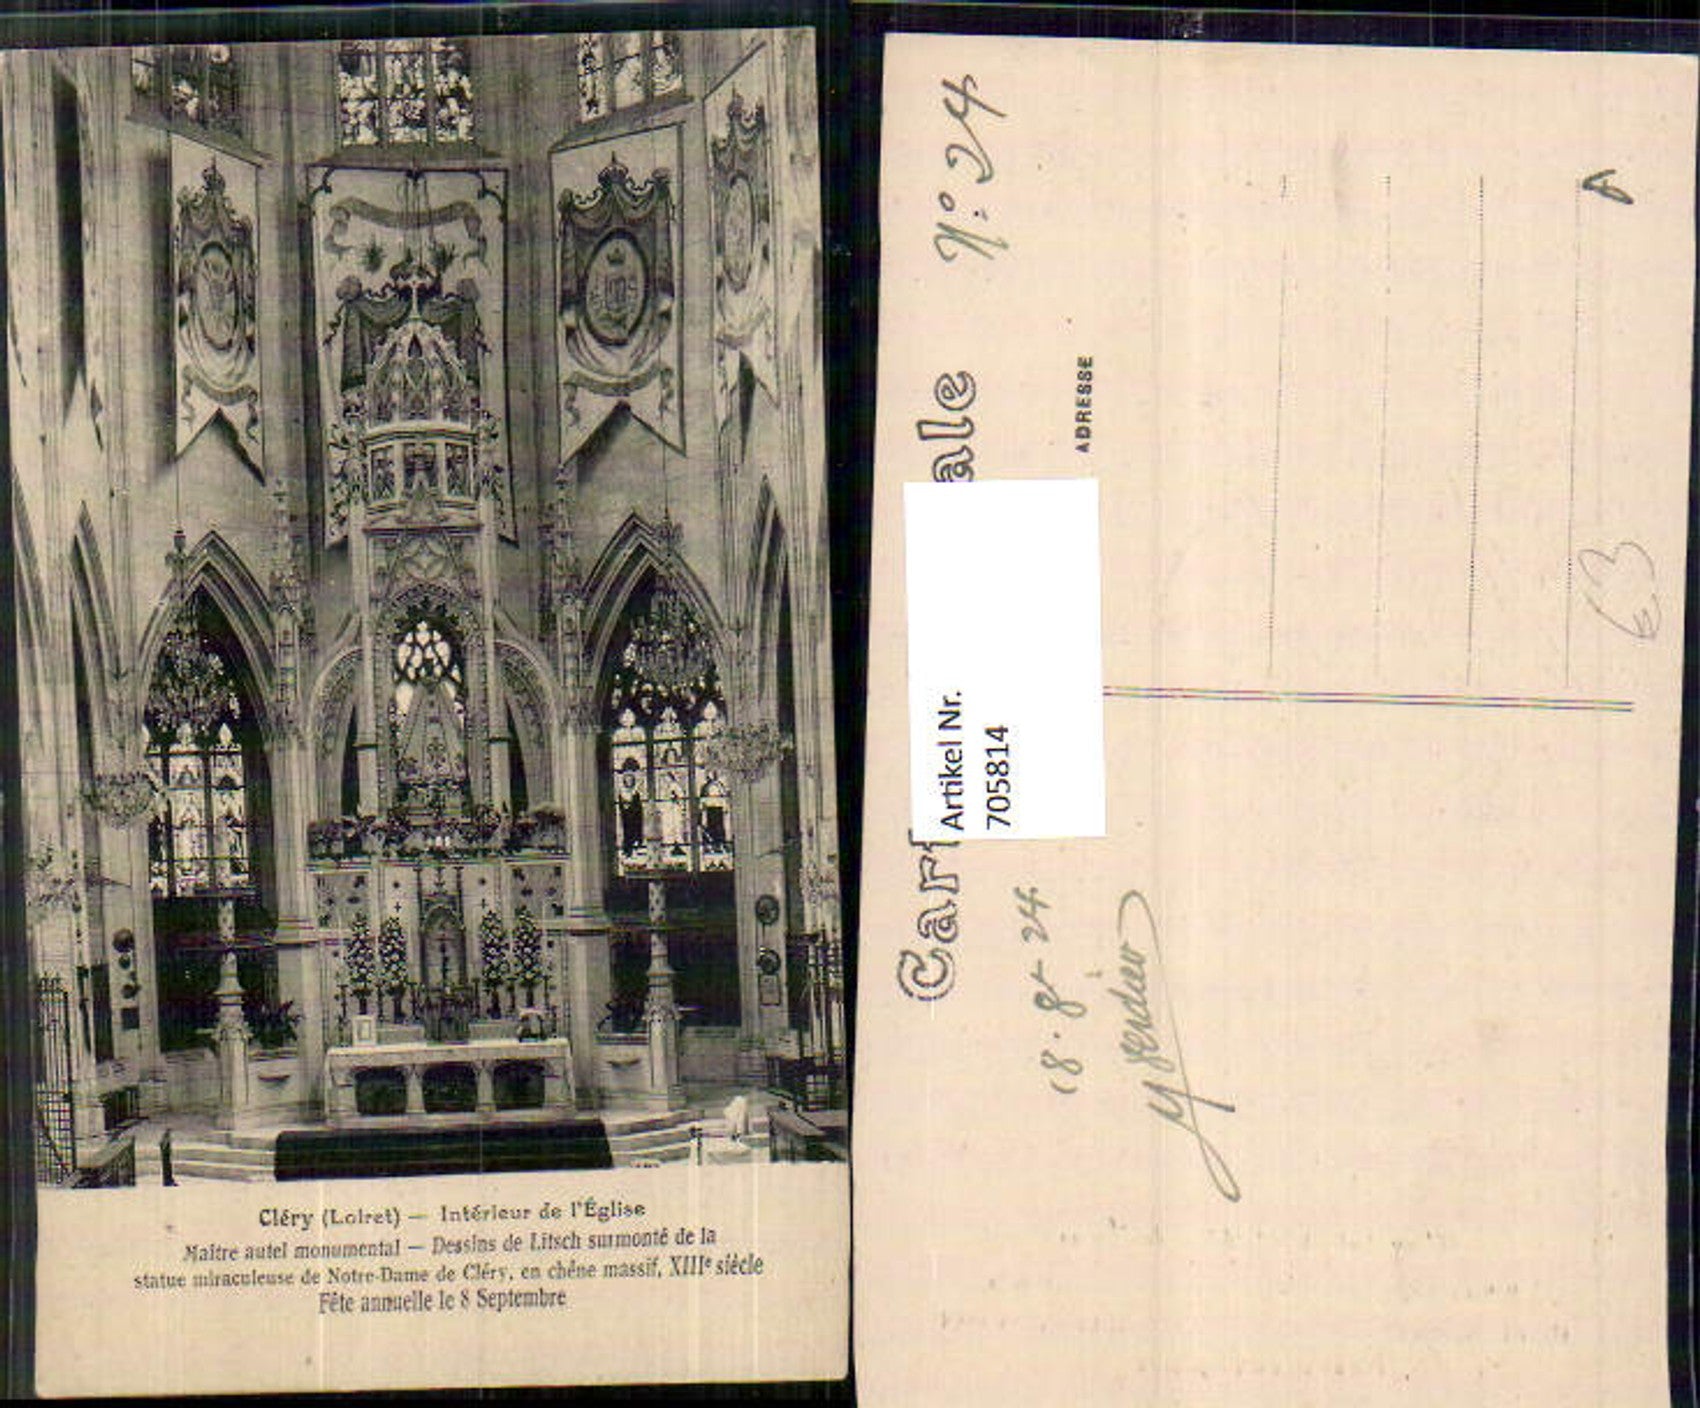 Cléry (Loiret) — Intérieur de l'Église
Maître autel monumental — Dessins de Litsch surmonté de la
statue miraculeuse de Notre-Dame de Cléry, en chêne massif, XIIIe siècle
Fête annuelle le 8 Septembre
N° 24
ale
ADRESSE
Artikel Nr.
705814
Car
18.8 24
€3